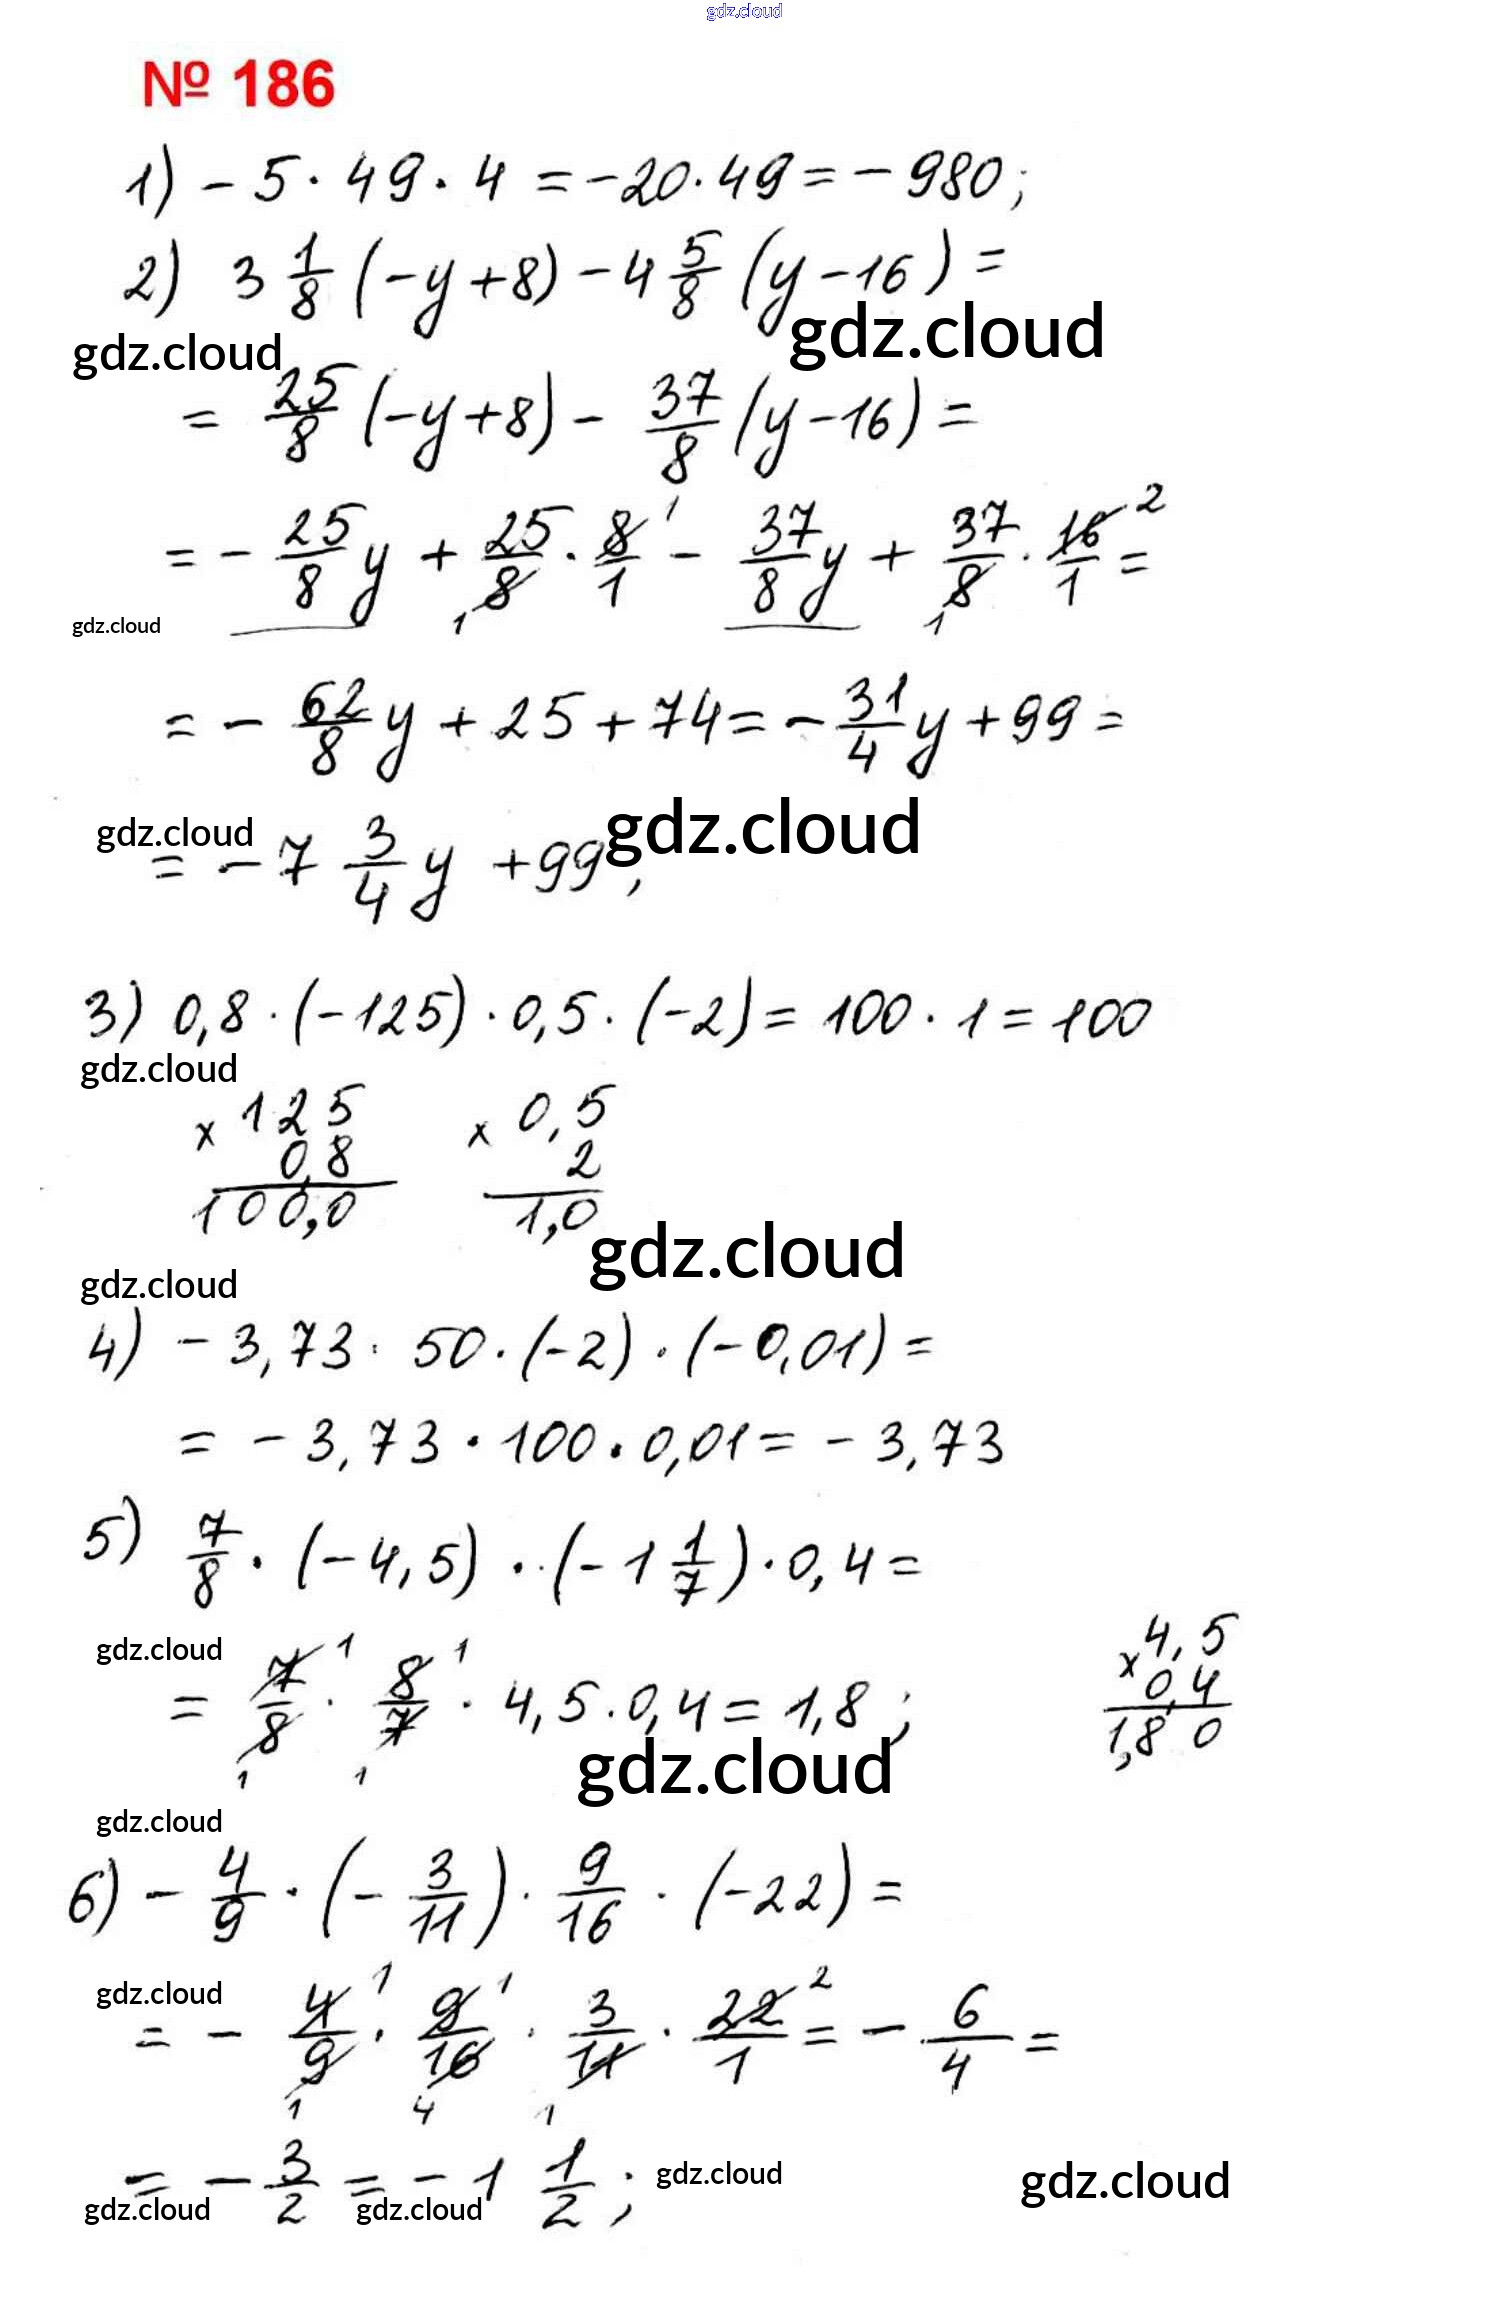 gdz.cloud
№ 186
1) - 5 · 49 · 4 = -20 · 49 = - 980;
2) 3 1/8 (-y+8) - 4 5/8 (y-16) =
gdz.cloud gdz.cloud
= 25/8 (-y+8) - 37/8 (y-16) =
= - 25/8 y + 25/8 · 8/1 - 37/8 y + 37/8 · 16/1 =
1 2
1 1
gdz.cloud
= - 62/8 y + 25 + 74 = - 31/4 y + 99 =
gdz.cloud gdz.cloud
= - 7 3/4 y + 99,
3) 0,8 · (-125) · 0,5 · (-2) = 100 · 1 = 100
gdz.cloud
x 125 x 0,5
0,8 2
100,0 1,0
gdz.cloud
gdz.cloud
4) - 3,73 · 50 · (-2) · (-0,01) =
= - 3,73 · 100 · 0,01 = - 3,73
5) 7/8 · (-4,5) · (-1 1/7) · 0,4 =
gdz.cloud
= 7/8 · 8/7 · 4,5 · 0,4 = 1,8;
1 1
1 1
x 4,5
0,4
1,80
gdz.cloud
gdz.cloud
6) - 4/9 · (- 3/11) · 9/16 · (-22) =
gdz.cloud
= - 4/9 · 9/16 · 3/11 · 22/1 = - 6/4 =
1 1 2
1 4 1
= - 3/2 = - 1 1/2;
gdz.cloud gdz.cloud
gdz.cloud gdz.cloud